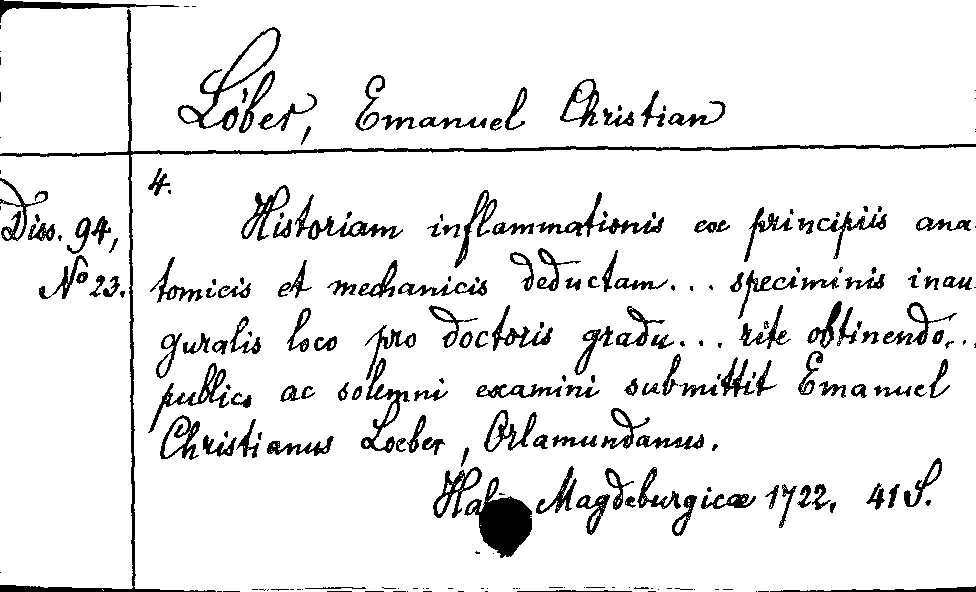 Löber, Emanuel Christian
4.
Diss. 94,
No 23.
Historiam inflammationis ex principiis ana-
tomicis et mechanicis deductam... speciminis inau-
guralis loco pro doctoris gradu... rite obtinendo...
publico ac solemni examini submittit Emanuel
Christianus Loeber, Orlamundanus.
Magdeburgicæ 1722. 41 S.